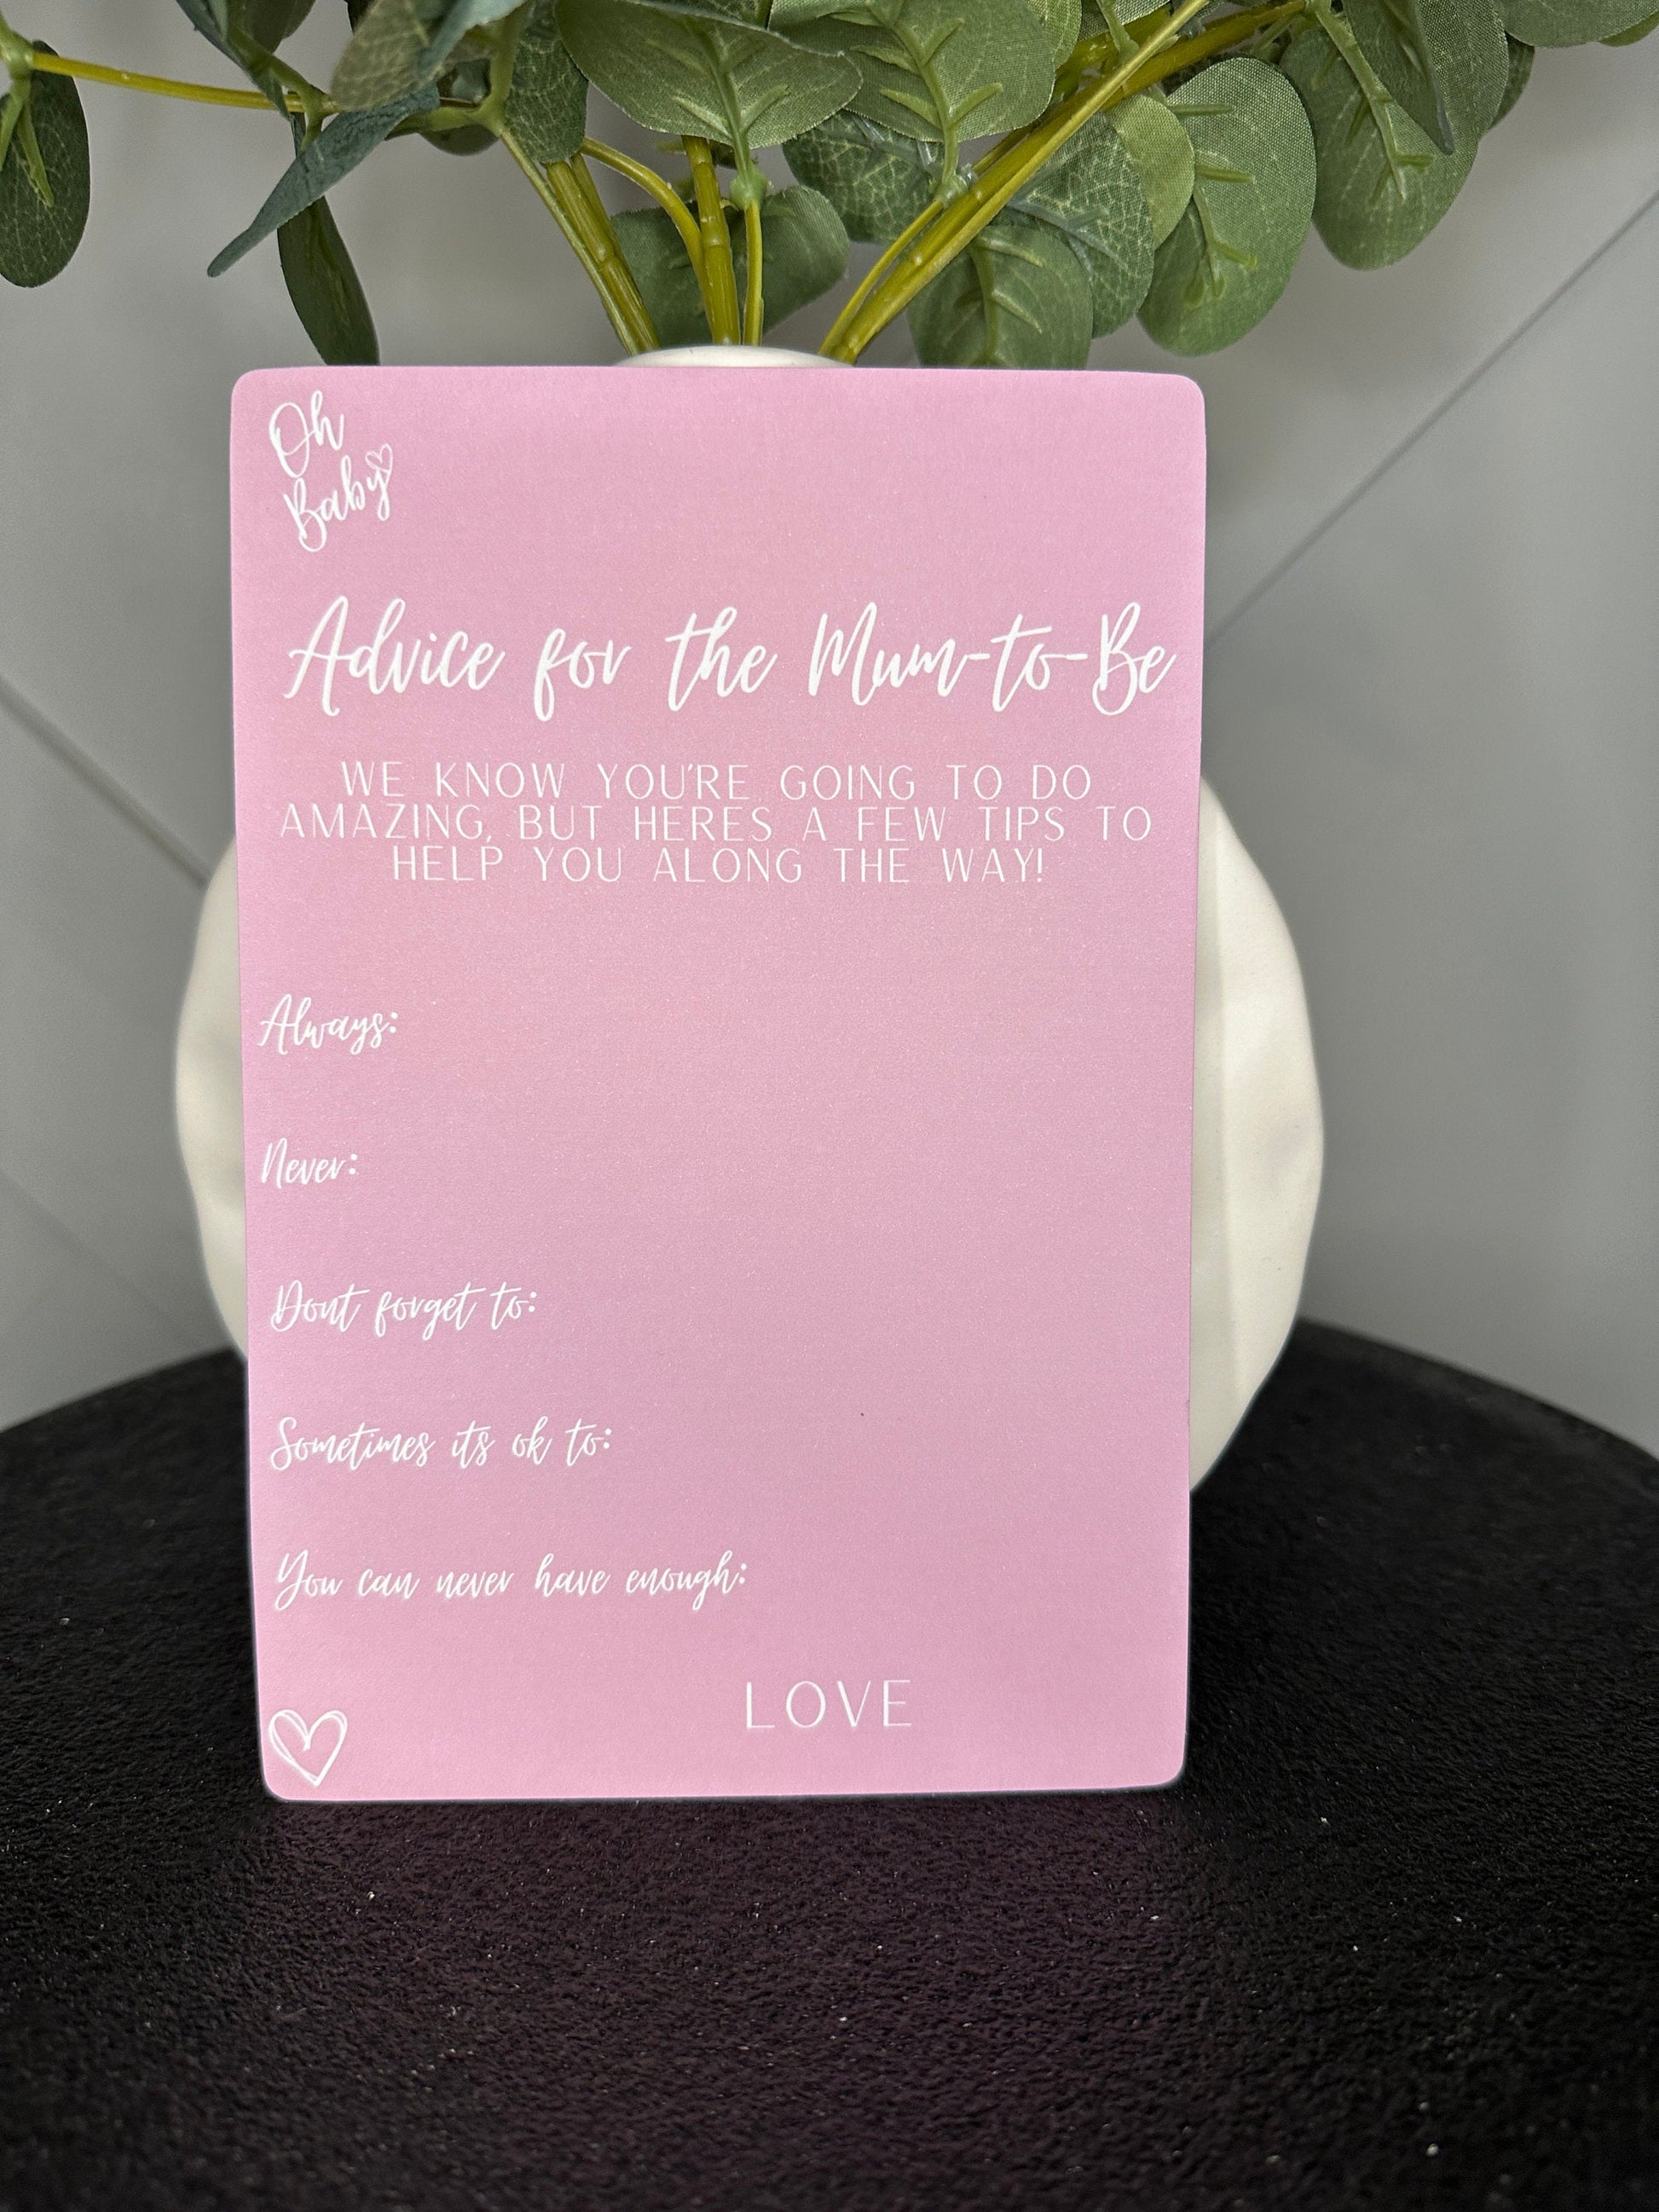 Oh
Baby
Advice for the Mum-to-Be
WE KNOW YOU'RE GOING TO DO
AMAZING, BUT HERES A FEW TIPS TO
HELP YOU ALONG THE WAY!
Always:
Never:
Dont forget to:
Sometimes its ok to:
You can never have enough:
LOVE